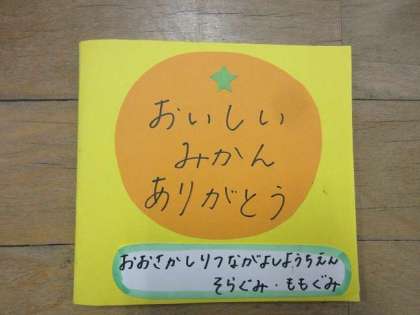 おいしい
みかん
ありがとう
おおさかしりつながよしようちえん
そらぐみ・ももぐみ